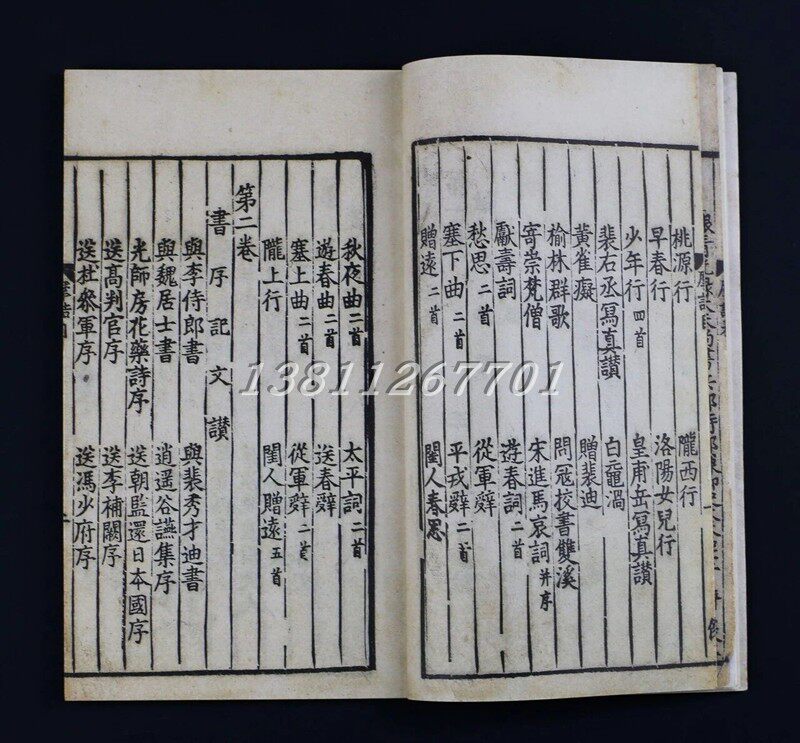 桃源行 隴西行
早春行 洛陽女兒行
少年行四首 皇甫岳寫真讃
裴右丞寫真讃 白黿渦
黄雀癡 贈裴迪
榆林群歌 問冦挍書雙溪
寄崇梵僧 宋進馬哀詞并序
獻壽詞 遊春詞二首
愁思二首 從軍辤
塞下曲二首 平戎辤二首
贈遠二首 閨人春思
秋夜曲二首 太平詞二首
遊春曲二首 送春辤
塞上曲二首 從軍辤二首
隴上行 閨人贈遠五首
第二卷
書序記文讃
與李侍郎書 與裴秀才迪書
與魏居士書 逍遥谷讌集序
光師房花藥詩序 送朝監還日本國序
送髙判官序 送李補闕序
送杜叅軍序 送馮少府序
13811267701